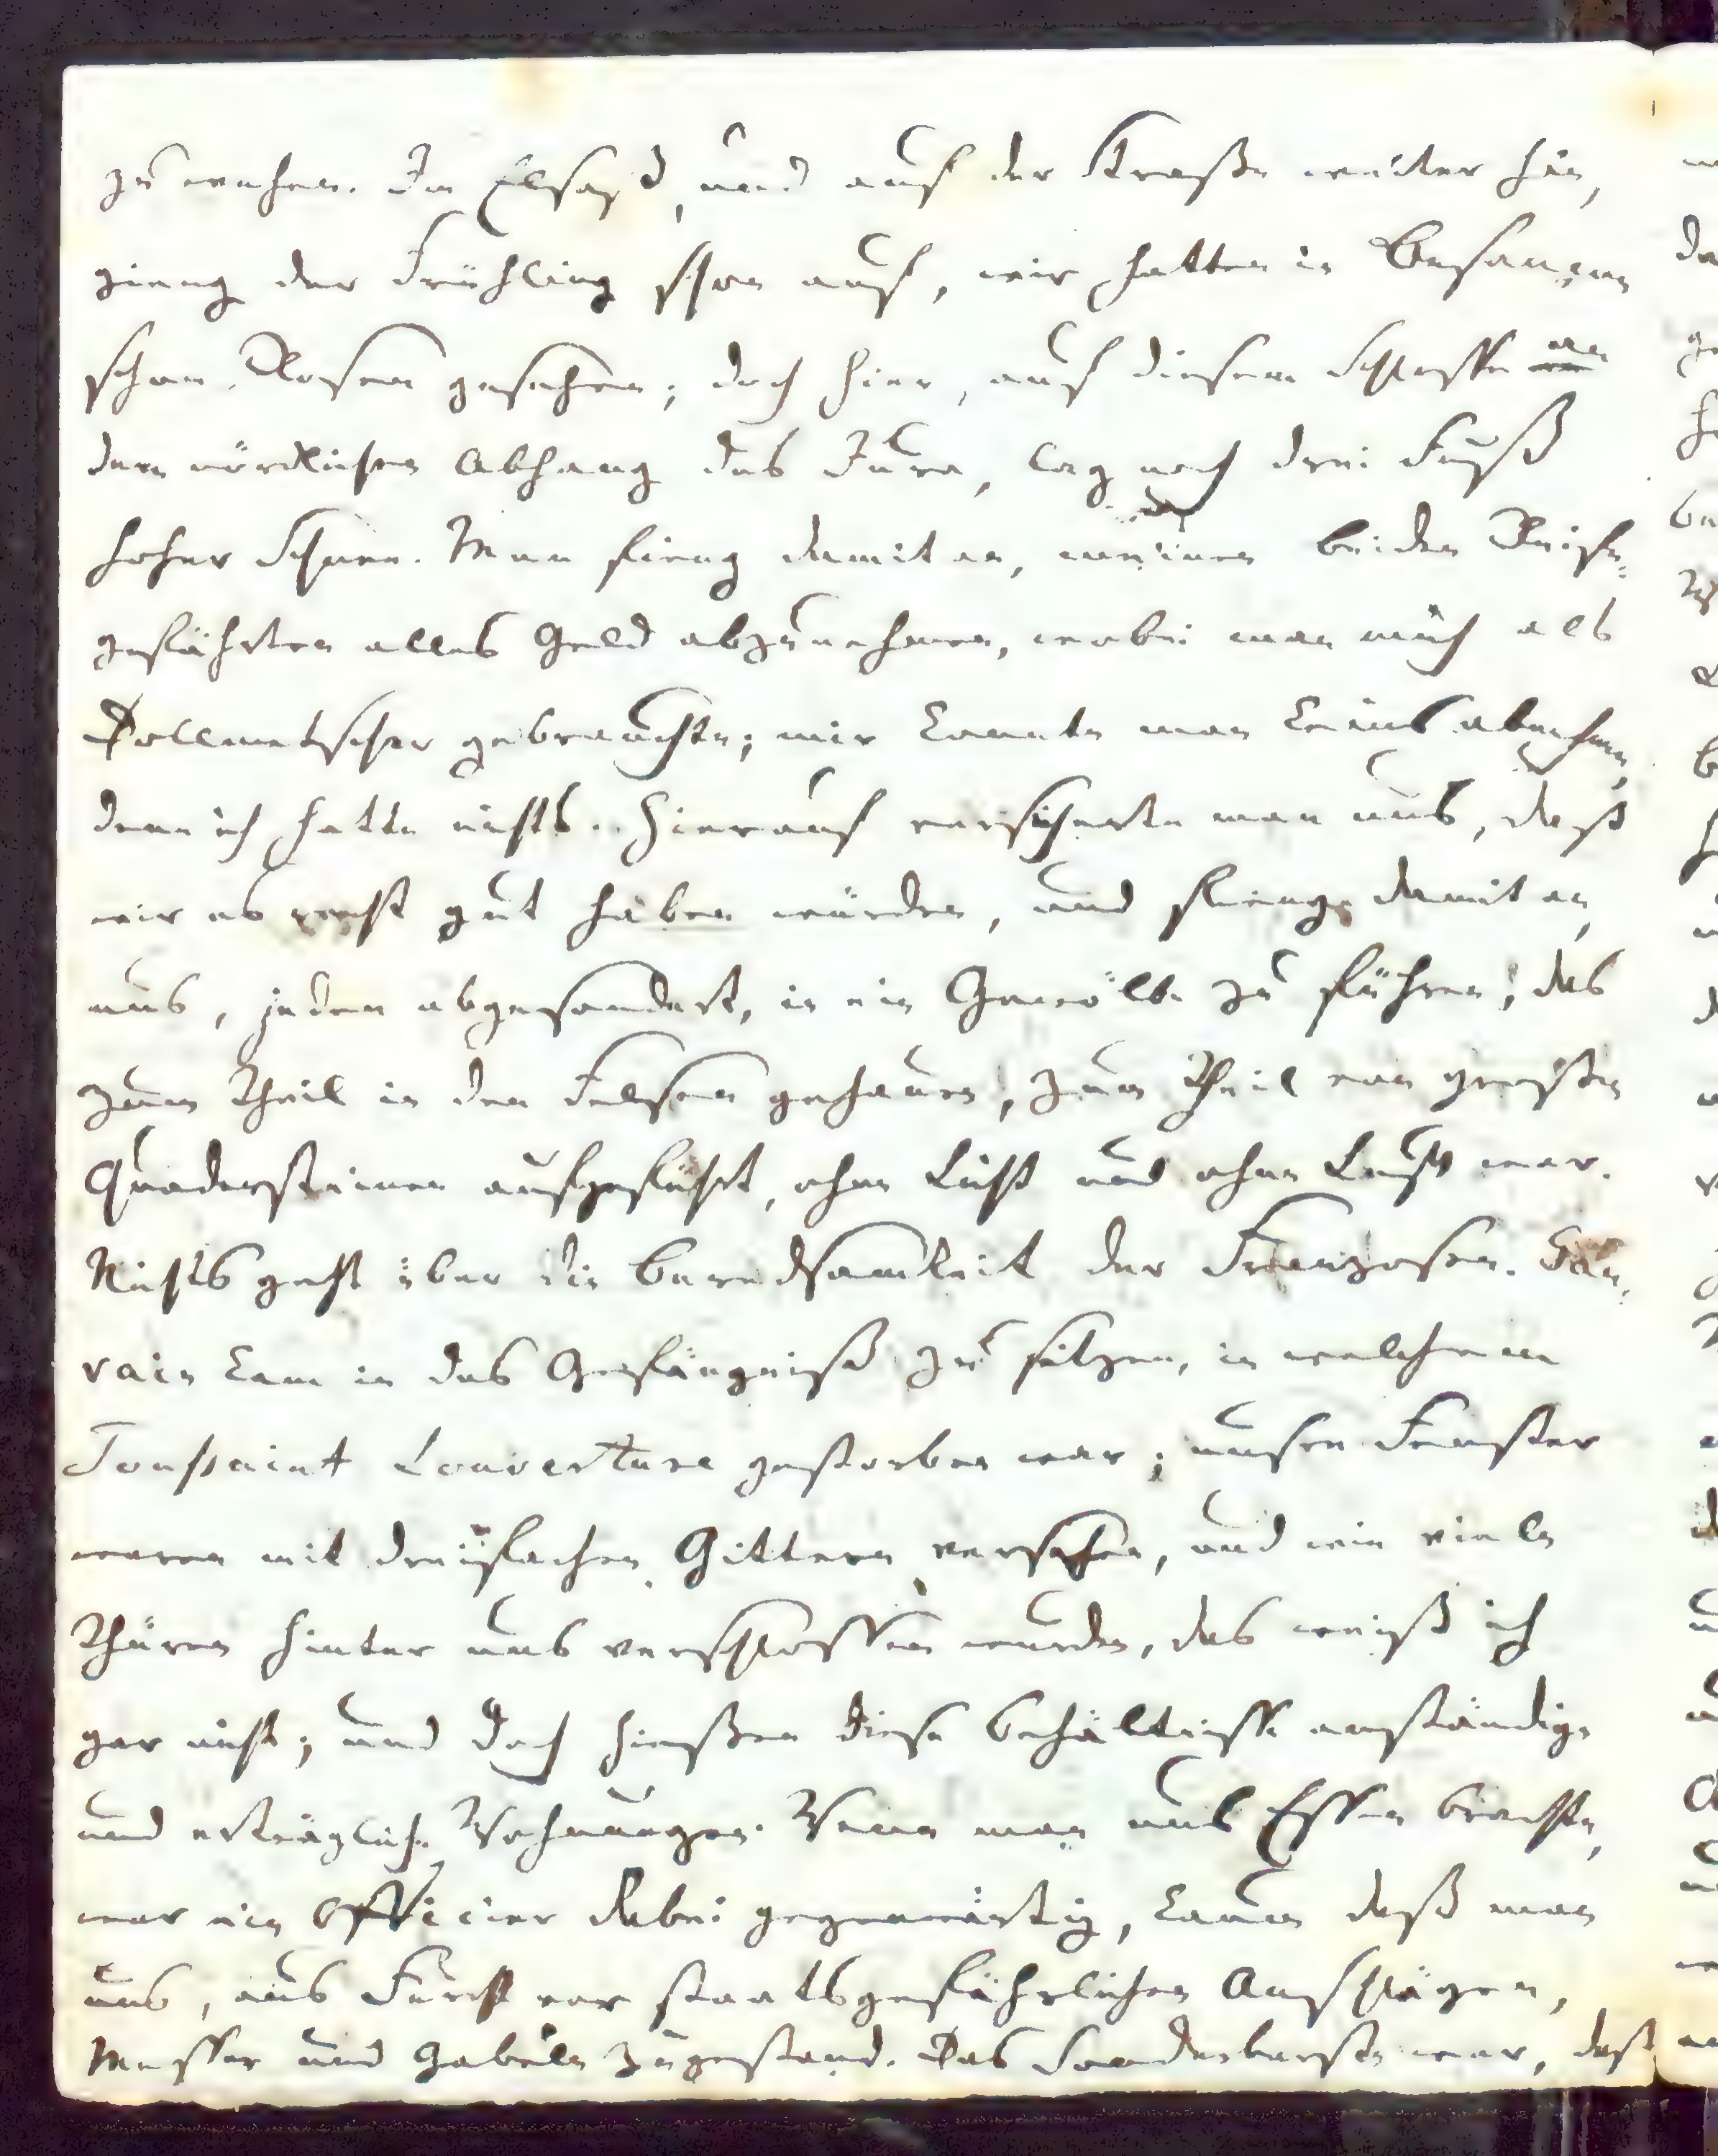 zu wehen. Im Elsaß, und auf der Straße weiter hin,
gieng der Frühling schon auf, wir hatten in Besançon
schon Rosen gesehen; doch hier, auf diesem Schlosse an
dem nördlichen Abhang des Jura, lag noch drei Fuß
hoher Schnee. Man fieng damit an, meinen beiden Reise-
gefährten alles Geld abzunehmen, wobei man mich als
Dollmetscher gebrauchte; mir konnte man keins abnehmen,
denn ich hatte nichts. Hierauf versicherte man uns, daß
wir es recht gut haben würden, und fieng damit an,
uns, jeden abgesondert, in ein Gewölbe zu führen, das
zum Theil in den Felsen gehauen, zum Theil von großen
Quadersteinen aufgeführt, ohne Licht und ohne Luft war.
Nichts geht über die Beredsamkeit der Franzosen. Gau-
vain kam in das Gefängniß zu sitzen, in welchem
Toussaint Louverture gestorben war; unsre Fenster
waren mit dreifachen Gittern versehen, und wie viele
Thüren hinter uns verschlossen wurden, das weiß ich
gar nicht; und doch hießen diese Behältnisse anständige
und erträgliche Wohnungen. Wenn man uns Essen brachte,
war ein Officier dabei gegenwärtig, kaum daß man
uns, aus Furcht vor staatsgefährlichen Anschlägen,
Messer und Gabeln zugestand. Das Sonderbarste war, daß